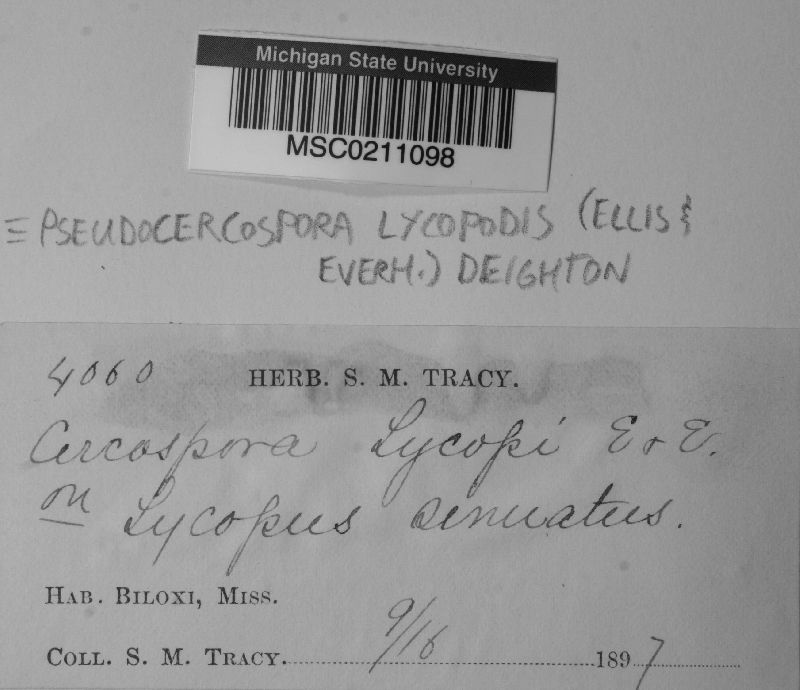 Michigan State University
MSC0211098
= PSEUDOCERCOSPORA LYCOPODIS (ELLIS &
EVERH.) DEIGHTON
4060 HERB. S. M. TRACY.
Cercospora Lycopi E & E.
on Lycopus sinuatus.
HAB. BILOXI, MISS.
COLL. S. M. TRACY. 9/16 1897